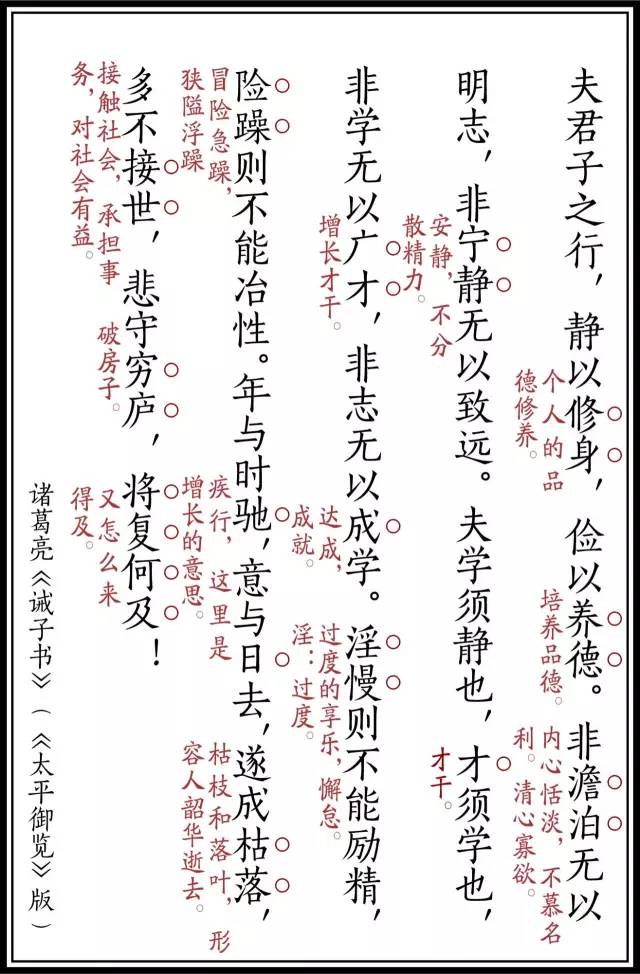 夫君子之行，静以修身，俭以养德。非澹泊无以
个人的品
德修养。
培养品德。
内心恬淡，不慕名
利。清心寡欲。
明志，非宁静无以致远。夫学须静也，才须学也，
安静，不分
散精力。
才干。
非学无以广才，非志无以成学。淫慢则不能励精，
增长才干。
达成，
成就。
过度的享乐，懈怠。
淫：过度。
险躁则不能冶性。年与时驰，意与日去，遂成枯落，
冒险急躁，
狭隘浮躁
疾行，这里是
增长的意思。
枯枝和落叶，形
容人韶华逝去。
多不接世，悲守穷庐，将复何及！
接触社会，承担事
务，对社会有益。
破房子。
又怎么来
得及。
诸葛亮《诫子书》（《太平御览》版）